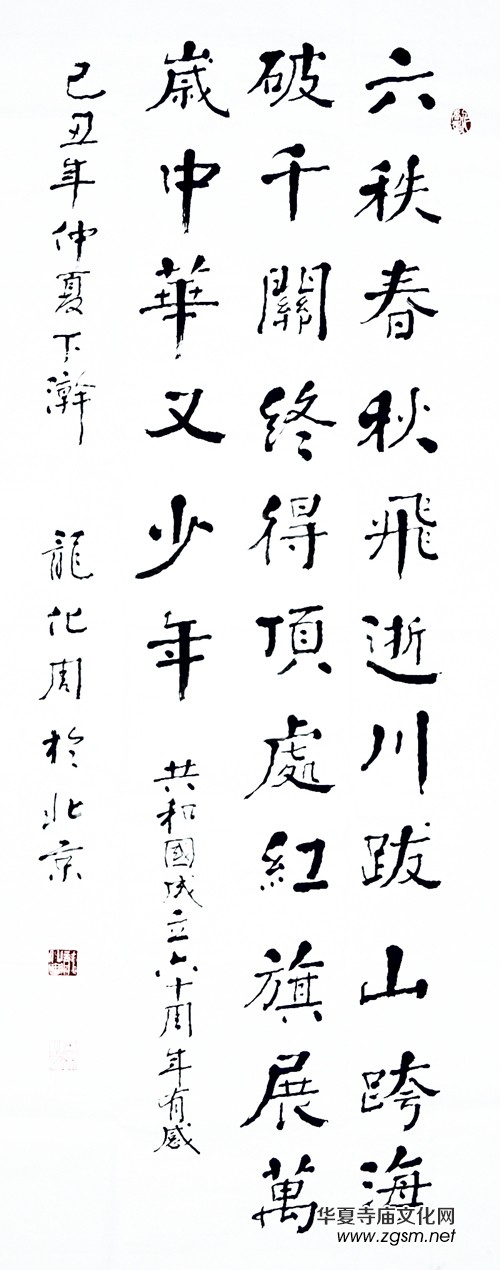 六秩春秋飛逝川跋山跨海
破千關終得頂處紅旗展萬
歲中華又少年
共和國成立六十周年有感
己丑年仲夏下澣
龍化周於北京
华夏寺庙文化网
www.zgsm.net